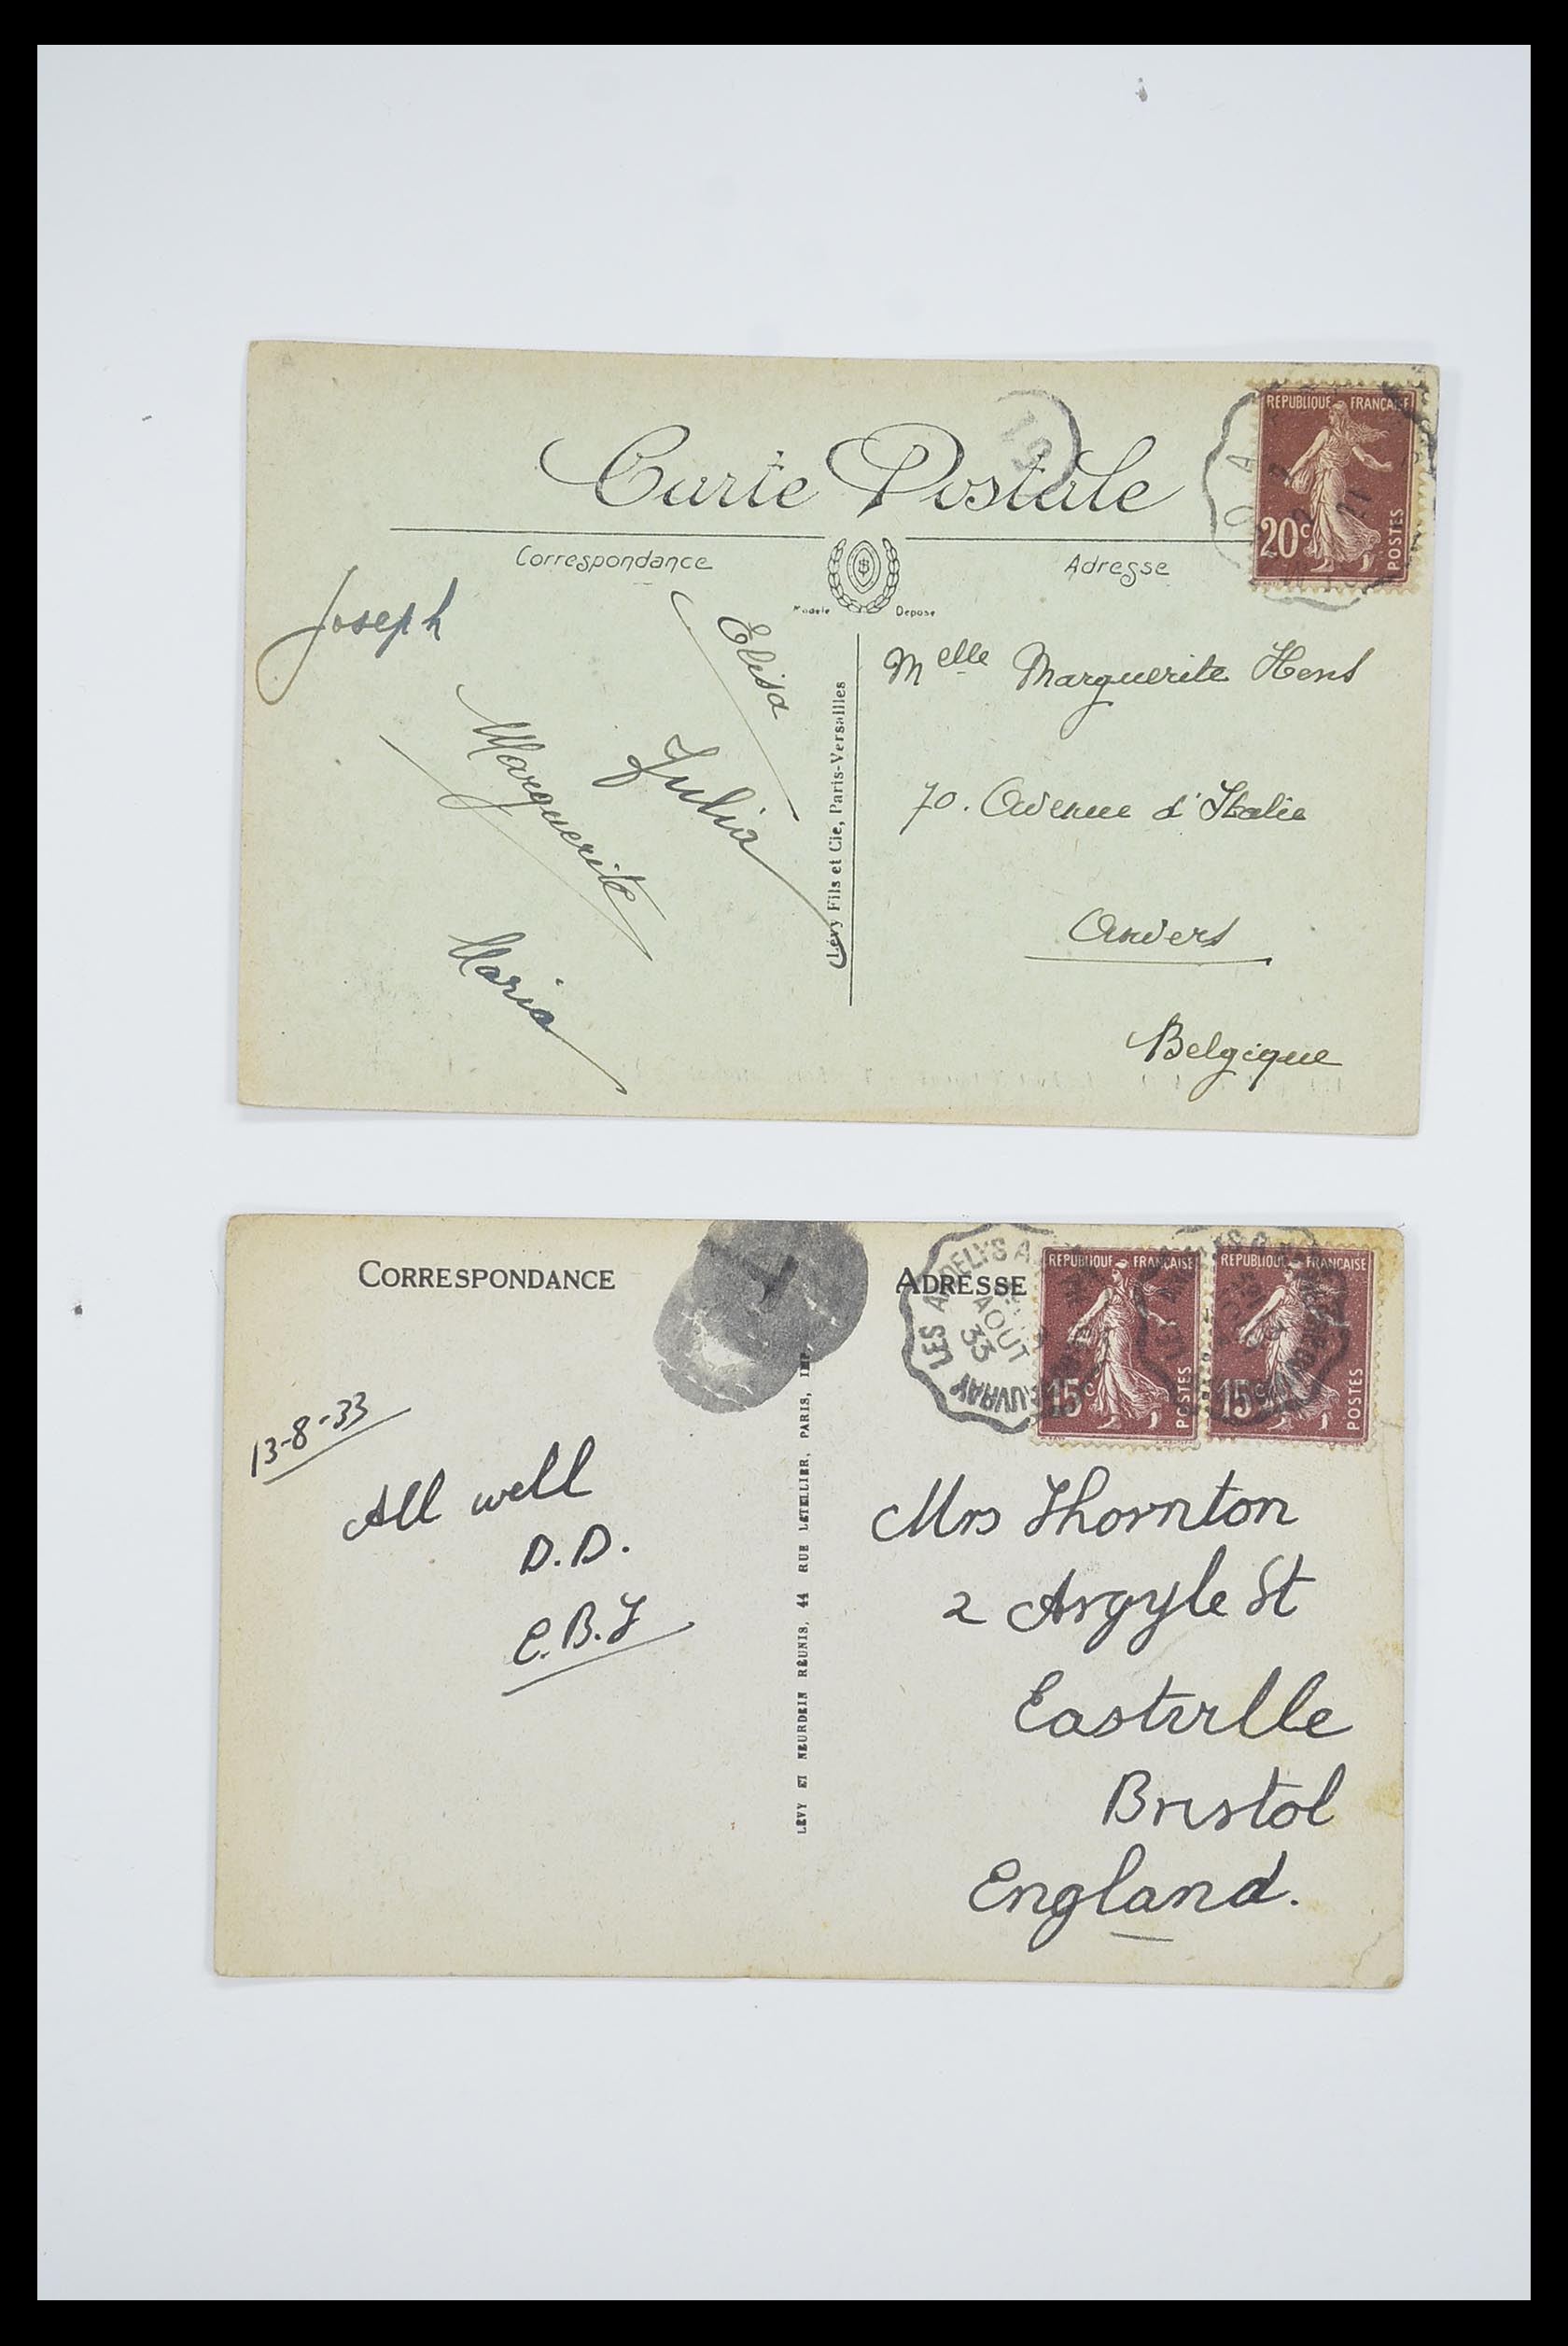 Carte Postale
Correspondance
Adresse
Modèle Déposé
REPUBLIQUE FRANÇAISE
20c
POSTES
Joseph
Elisa
Julia
Marguerite
Maria
Lévy Fils et Cie, Paris-Versailles
Melle Marguerite Hens
70. Avenue d'Italie
Anvers
Belgique
CORRESPONDANCE
ADRESSE
LES ANDELYS A
AOUT
33
REPUBLIQUE FRANÇAISE
15c
POSTES
REPUBLIQUE FRANÇAISE
15c
POSTES
13-8-33
All well
D.D.
LÉVY ET NEURDEIN RÉUNIS, 44 RUE LETELLIER, PARIS, IMP.
Mrs Thornton
2 Argyle St
Eastville
Bristol
England.